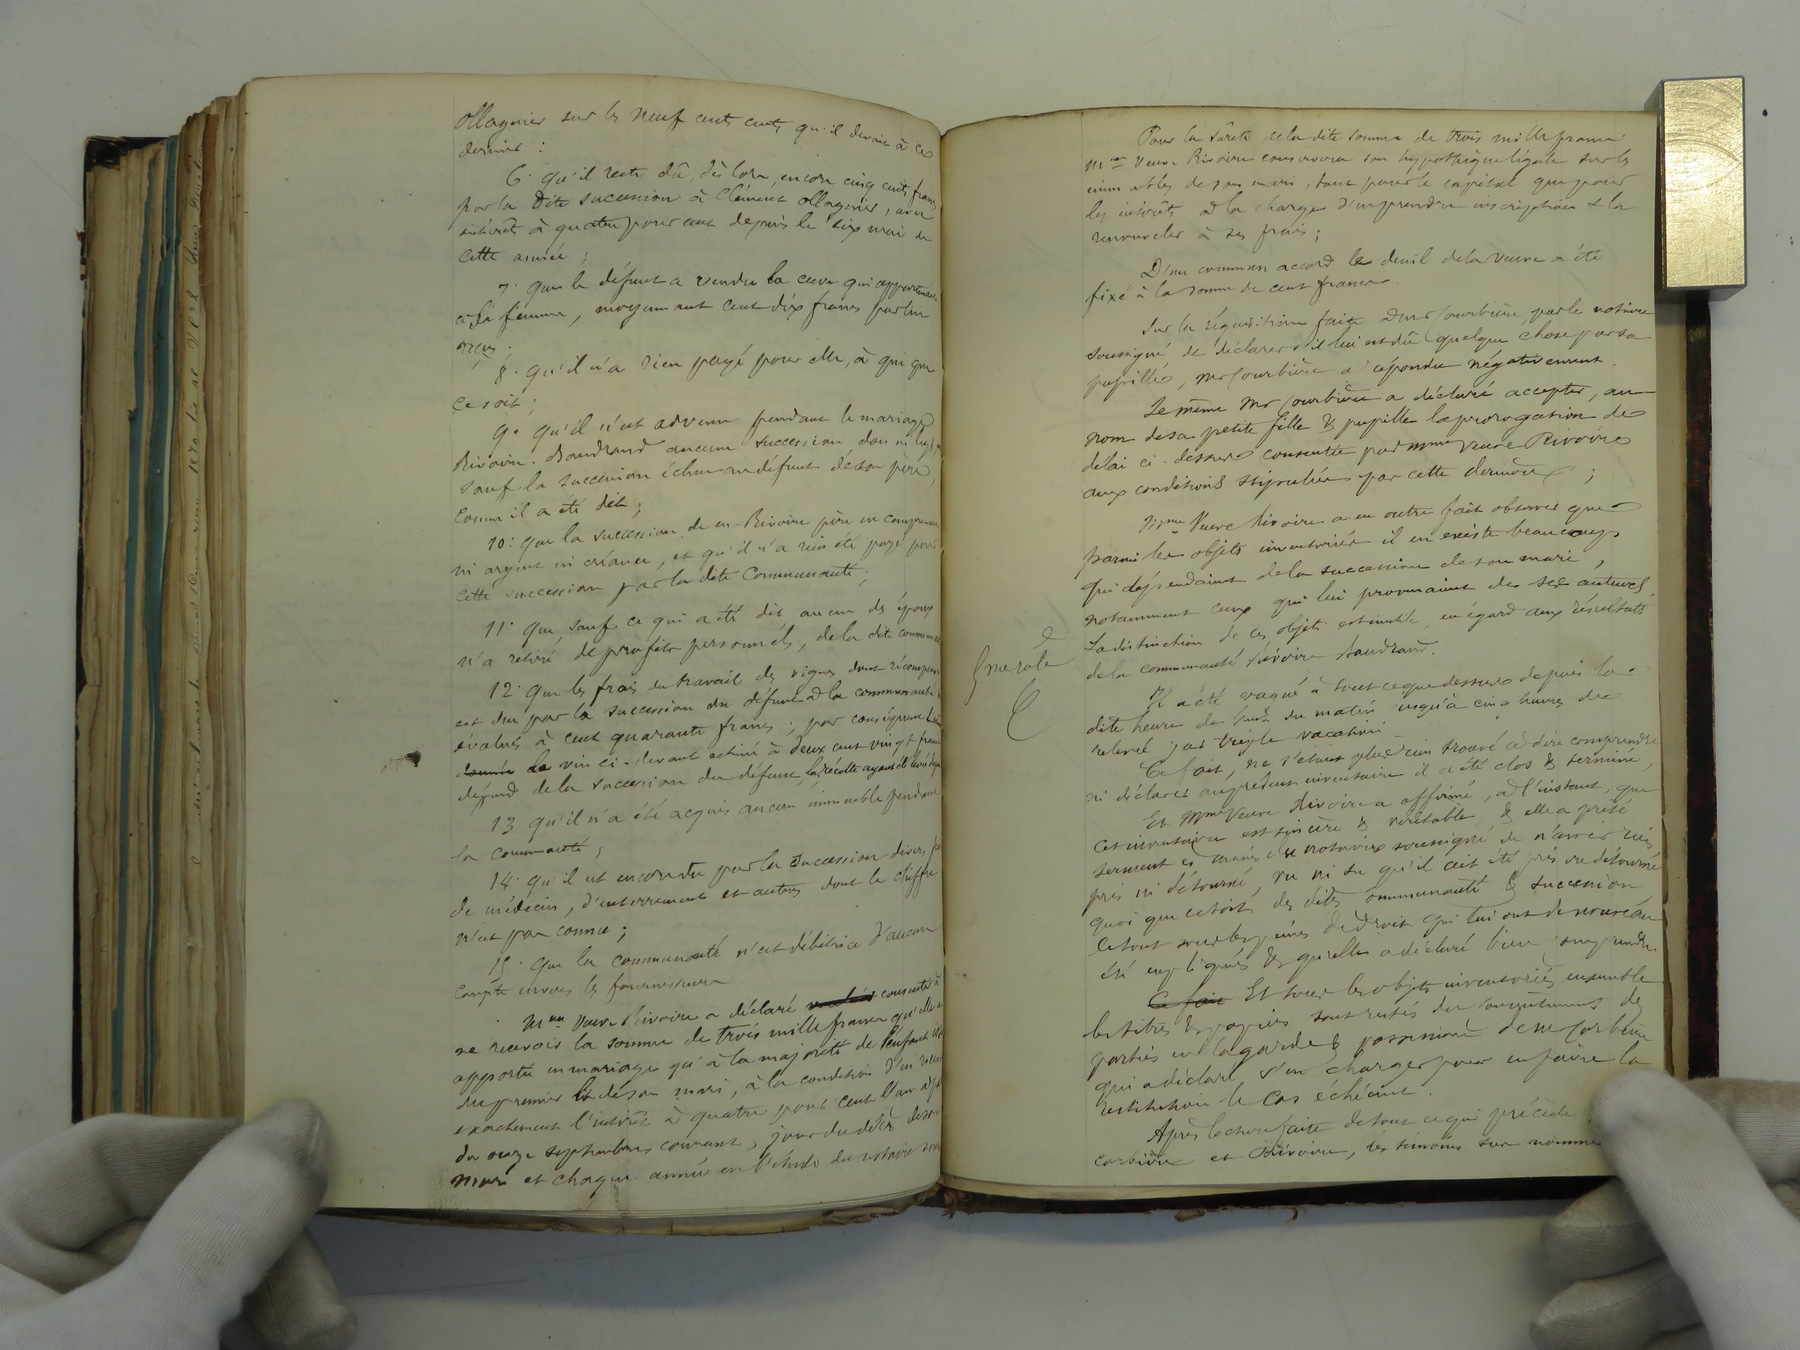 Ollagnier sur les neuf cents cents qu'il devait à ce
dernier :
6° qu'il reste dû, dès lors, encore cinq cents francs
par la dite succession à Clément Ollagnier, avec
intérêts à quatre pour cent depuis le six mai de
cette année ;
7° que le défunt a vendu la cuve qui appartenait
à sa femme, moyennant cent dix francs par lui
reçus ;
8° qu'il n'a rien payé pour elle, à qui que
ce soit ;
9° qu'il n'est advenu pendant le mariage
Rivoire-Baudrand aucune succession don ni legs,
sauf la succession échue au défunt de son père,
comme il a été dit ;
10° que la succession de en. Rivoire père ne comprenait
ni argent ni créance, et qu'il n'a rien été payé pour
cette succession par la dite communauté ;
11° que, sauf ce qui a été dit aucun des époux
n'a retiré de profits personnels, de la dite communauté
12° que les frais du travail des vignes dont récompense
est due par la succession du défunt à la communauté
évalués à cent quarante francs ; par conséquent
le vin ci-devant estimé à deux cent vingt francs
dépend de la succession du défunt, la récolte ayant été
13° qu'il n'a été acquis aucun immeuble pendant
la communauté ;
14° qu'il est encore dû par la succession divers
de médecin, d'enterrement et autres dont le chiffre
n'est pas connu ;
15° que la communauté n'est débitrice d'aucun
compte envers les fournisseurs.
Mme Veuve Rivoire a déclaré consentir à
ne recevoir la somme de trois mille francs qu'elle a
apporté en mariage qu'à la majorité de l'enfant
du premier lit de son mari, à la condition d'en
exactement l'intérêt à quatre pour cent l'an à
du onze septembre courant, jour du décès de son
mari et chaque année en l'étude du notaire
Pour la sûreté de la dite somme de trois mille francs
Mme Veuve Rivoire conservera son hypothèque légale sur les
immeubles de son mari, tant pour le capital que pour
les intérêts à la charge d'en prendre inscription & la
renouveler à ses frais ;
D'un commun accord le deuil de la veuve a été
fixé à la somme de cent francs.
Sur la réquisition faite à Mr Courbière, par le notaire
soussigné de déclarer s'il lui est dû quelque chose par sa
pupille, Mr Courbière a répondu négativement.
Le même Mr Courbière a déclaré accepter, au
nom de sa petite fille & pupille la prorogation de
délai ci-dessus consentie par Mme Veuve Rivoire
aux conditions stipulées par cette dernière ;
Mme Veuve Rivoire a en outre fait observer que
parmi les objets inventoriés il en existe beaucoup
qui dépendaient de la succession de son mari,
notamment ceux qui lui provenaient de ses auteurs
La distinction de ces objets est inutile, eu égard aux résultats
de la communauté Rivoire Baudrand.
Il a été vaqué à tout ce que dessus depuis la
dite heure de huit du matin jusqu'à cinq heures de
relevée par triple vacation.
Ce fait, ne s'étant plus rien trouvé à dire comprendre
ni déclarer au présent inventaire il a été clos & terminé,
Et Mme Veuve Rivoire a affirmé, à l'instant, que
cet inventaire est sincère & véritable, & elle a prêté
serment ès mains du notaire soussigné de n'avoir rien
pris ni détourné, vu ni su qu'il ait été pris ou détourné
quoi que ce soit des dites communauté & succession
Le tout sous les peines de droit qui lui ont de nouveau
été expliquées & qu'elle a déclaré bien comprendre.
Ce fait Et tous les objets inventoriés ensemble
les titres & papiers sont restés du consentement des
parties en la garde & possession de Mr Corbière
qui a déclaré s'en charger pour en faire la
restitution le cas échéant.
Après lecture faite de tout ce qui précède
Corbière et Rivoire, les témoins sus nommés